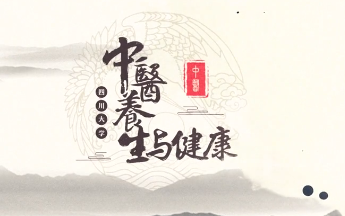 中醫
養
生与健康
四川大学
中醫